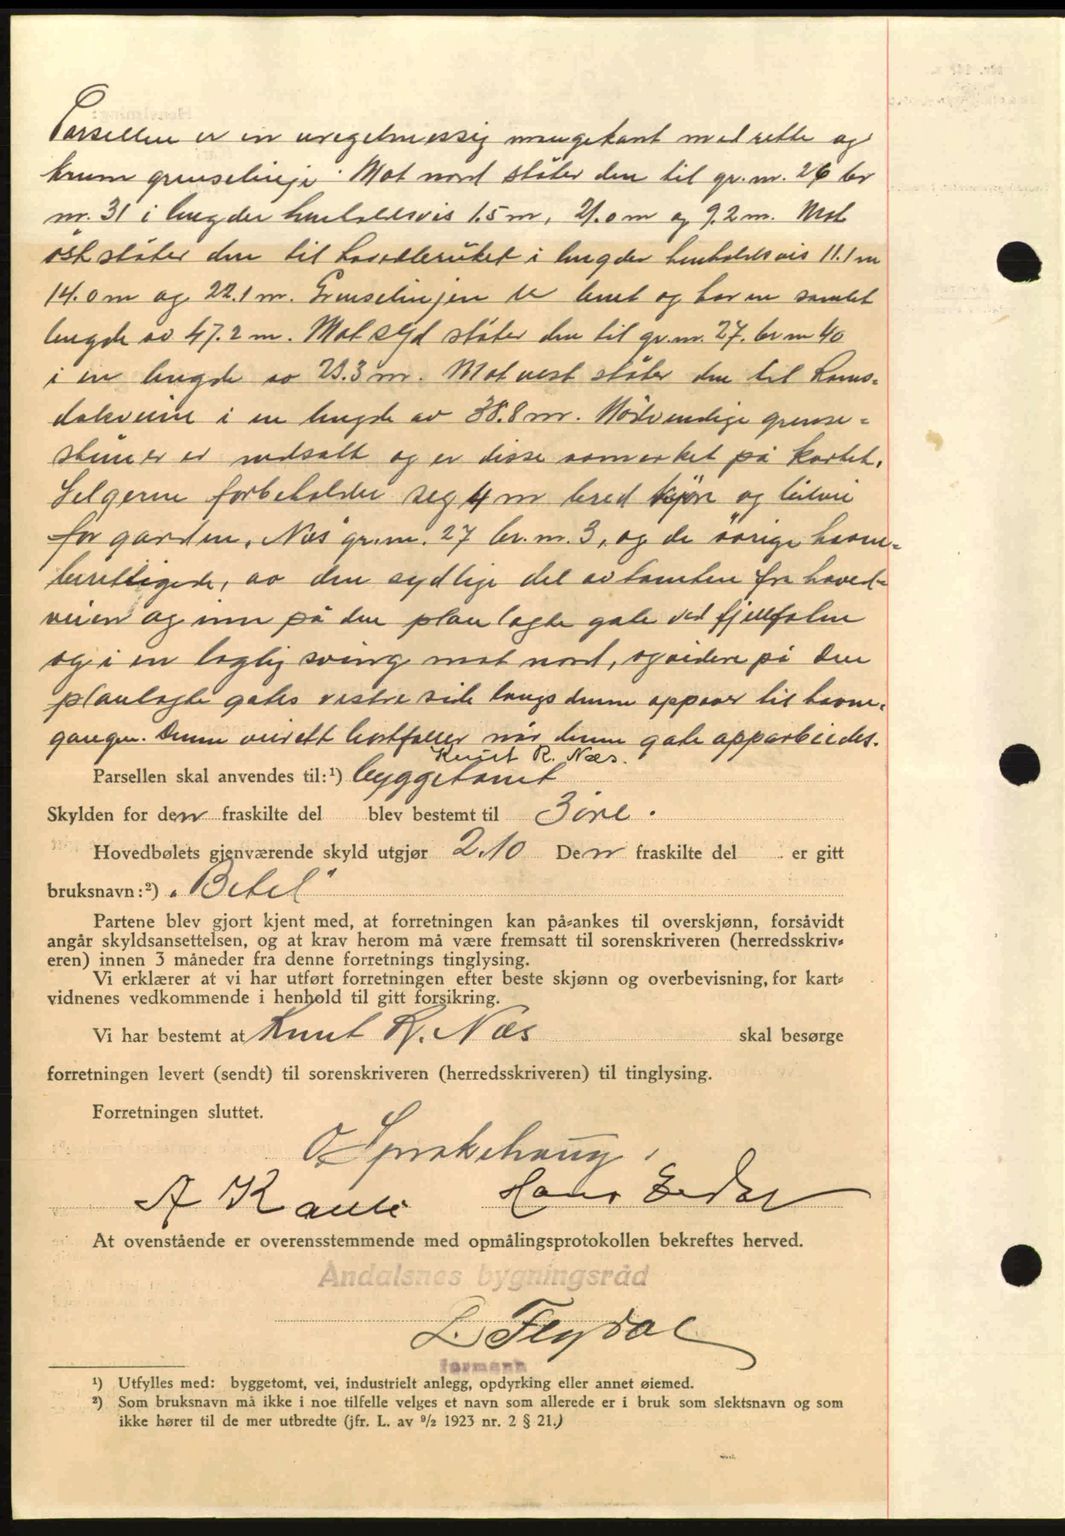 Parsellen er en uregelmessig mangekant med rette og
krum grenselinje. Mot nord støter den til gr. nr. 26 br
nr. 31 i lengder henholdsvis 1.5 m, 21.0 m og 9.2 m. Mot
øst støter den til hovedbruket i lengder henholdsvis 11.1 m
14.0 m og 22.1 m. Grenselinjen er bruet og har en samlet
lengde av 47.2 m. Mot syd støter den til gr. nr. 27. br nr 40
i en lengde av 23.3 m. Mot vest støter den til Roms=
dalsveien i en lengde av 38.8 m. Nødvendige grense=
steiner er nedsatt og er disse avmerket på kartet.
Selgerne forbeholder seg 4 m bred kjøre og
for garden „Næs" gr. nr. 27 br. nr. 3, og de øvrige havne=
berettigede, av den sydlige del av tomten fra hoved=
veien og inn på den planlagte gate ved
og i en laglig sving mot nord, og videre på den
planlagte gates vestre side langs denne oppover til havne=
gangen. Denne veirett bortfaller når denne gate opparbeides.
Knut R. Næs.
Parsellen skal anvendes til:¹) byggetomt
Skylden for den fraskilte del blev bestemt til 3 øre.
Hovedbølets gjenværende skyld utgjør 2.10 Den fraskilte del er gitt
bruksnavn:²) „Betel"
Partene blev gjort kjent med, at forretningen kan på-ankes til overskjønn, forsåvidt
angår skyldsansettelsen, og at krav herom må være fremsatt til sorenskriveren (herredsskriv-
eren) innen 3 måneder fra denne forretnings tinglysing.
Vi erklærer at vi har utført forretningen efter beste skjønn og overbevisning, for kart-
vidnenes vedkommende i henhold til gitt forsikring.
Vi har bestemt at Knut R. Næs skal besørge
forretningen levert (sendt) til sorenskriveren (herredsskriveren) til tinglysing.
Forretningen sluttet.
O. Sprakehaug
A Kavli Hans
At ovenstående er overensstemmende med opmålingsprotokollen bekreftes herved.
Åndalsnes bygningsråd
L. Flydal
formann
¹) Utfylles med: byggetomt, vei, industrielt anlegg, opdyrking eller annet øiemed.
²) Som bruksnavn må ikke i noe tilfelle velges et navn som allerede er i bruk som slektsnavn og som
ikke hører til de mer utbredte (jfr. L. av 9/2 1923 nr. 2 § 21.)